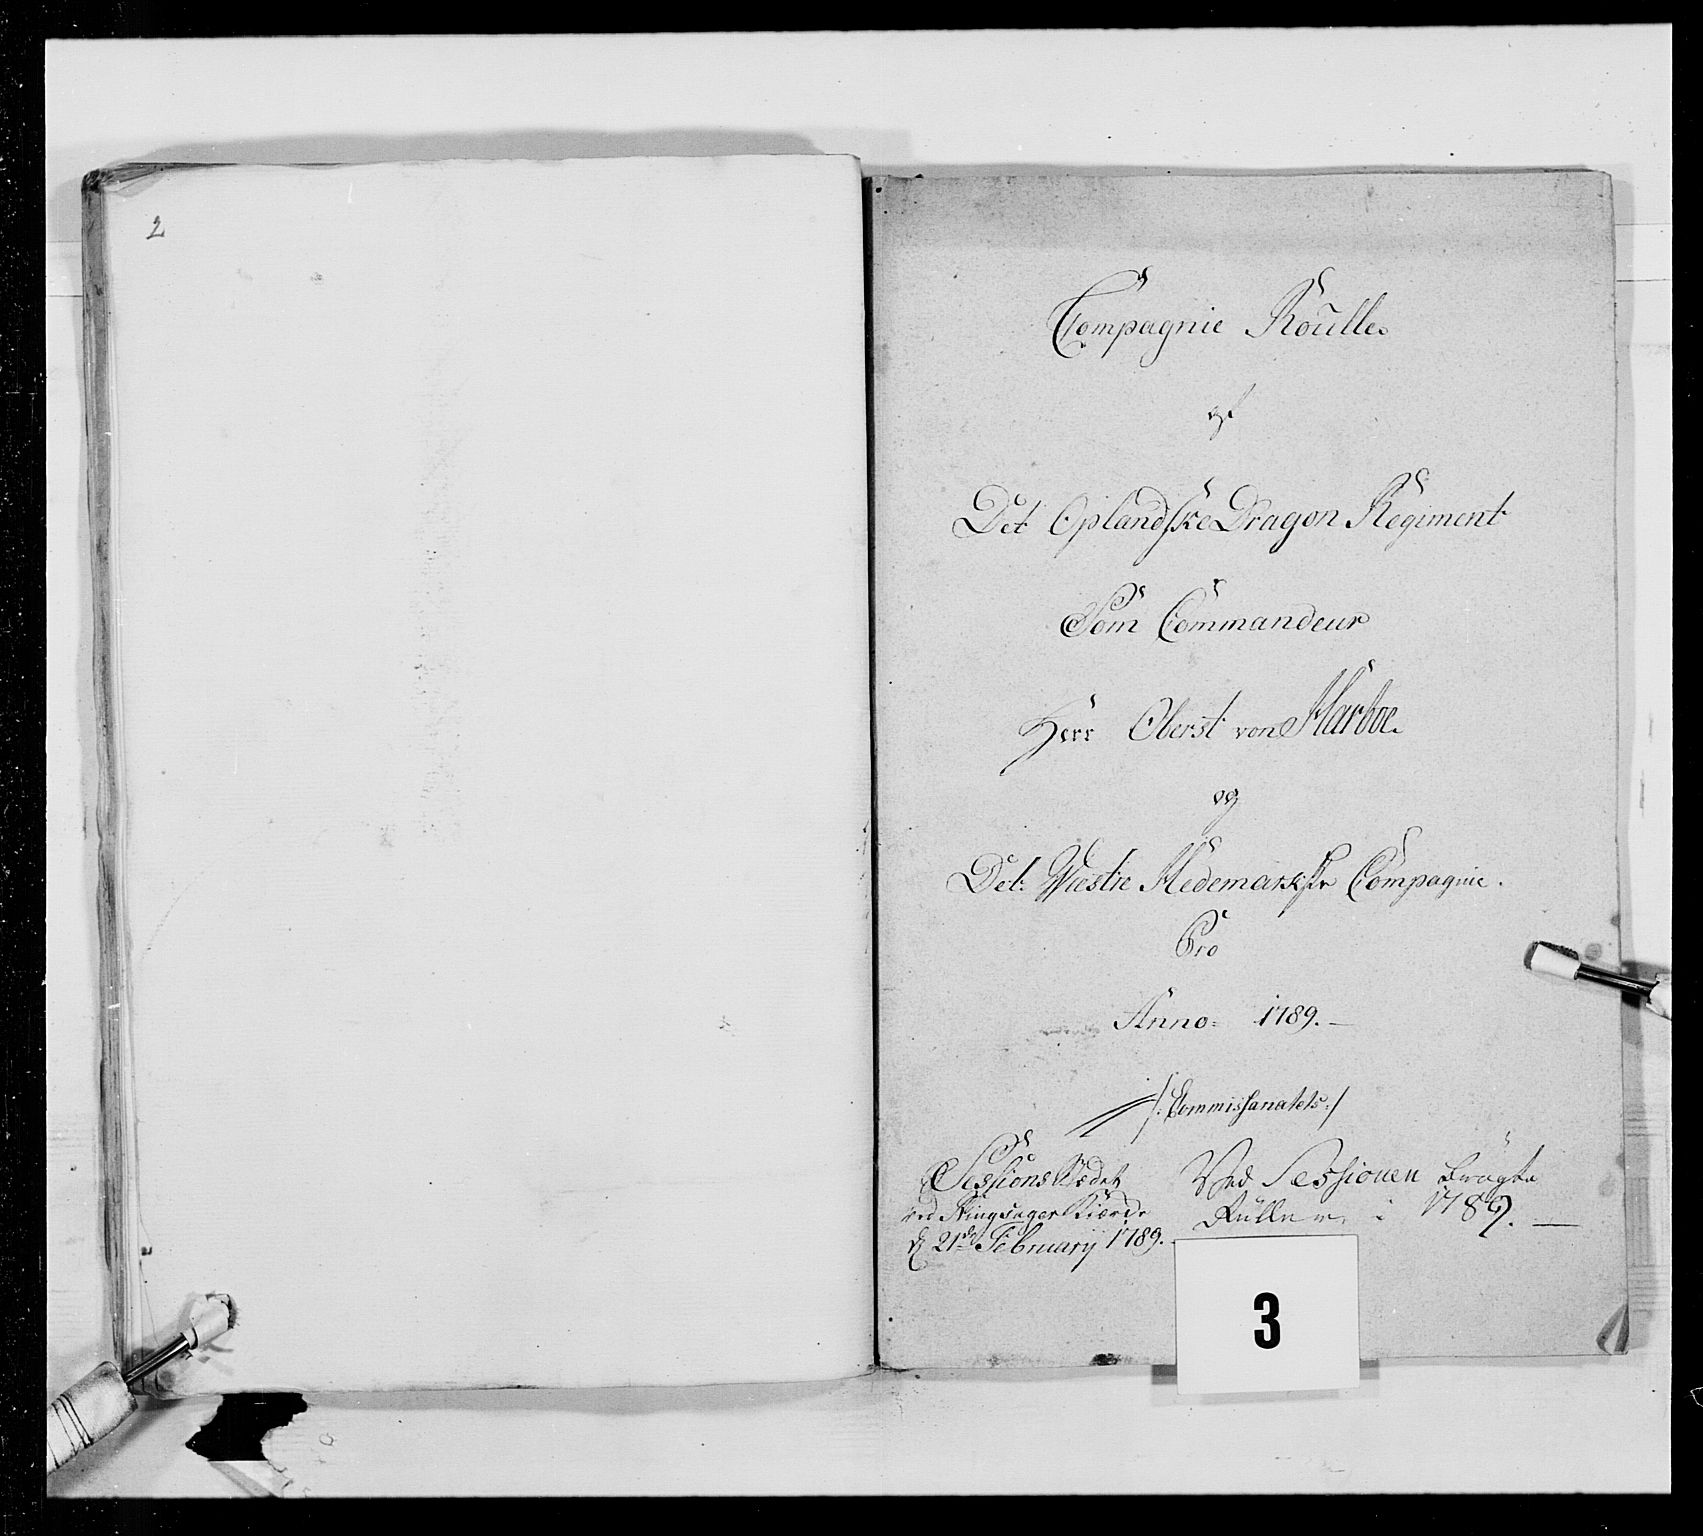 2
Compagnie Roulle
af
Det Oplandske Dragon Regiment
Som Commandeur
Herr Oberst von Harboe
og
Det Wæstre Hedemarkske Compagnie.
Pro
Anno 1789.
/: Commissariatets :/
Sessions Stædet
ved Ringsager Kircke
d 21de February 1789.
Ved Sessionen bragte
Rullen i 1789.
3